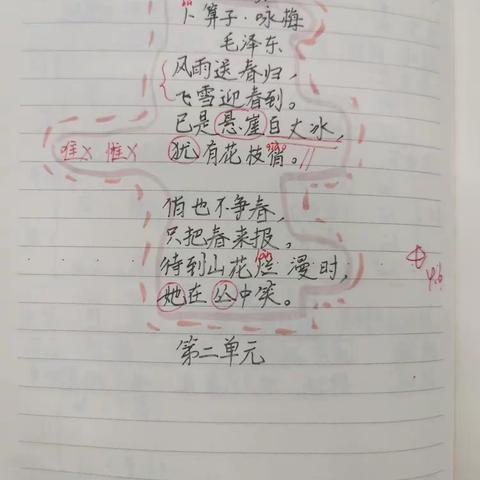 卜算子·咏梅
毛泽东
风雨送春归，
飞雪迎春到。
已是悬崖百丈冰，
唯× 惟× 犹有花枝俏。
俏也不争春，
只把春来报。
待到山花烂漫时，
她在丛中笑。
第二单元